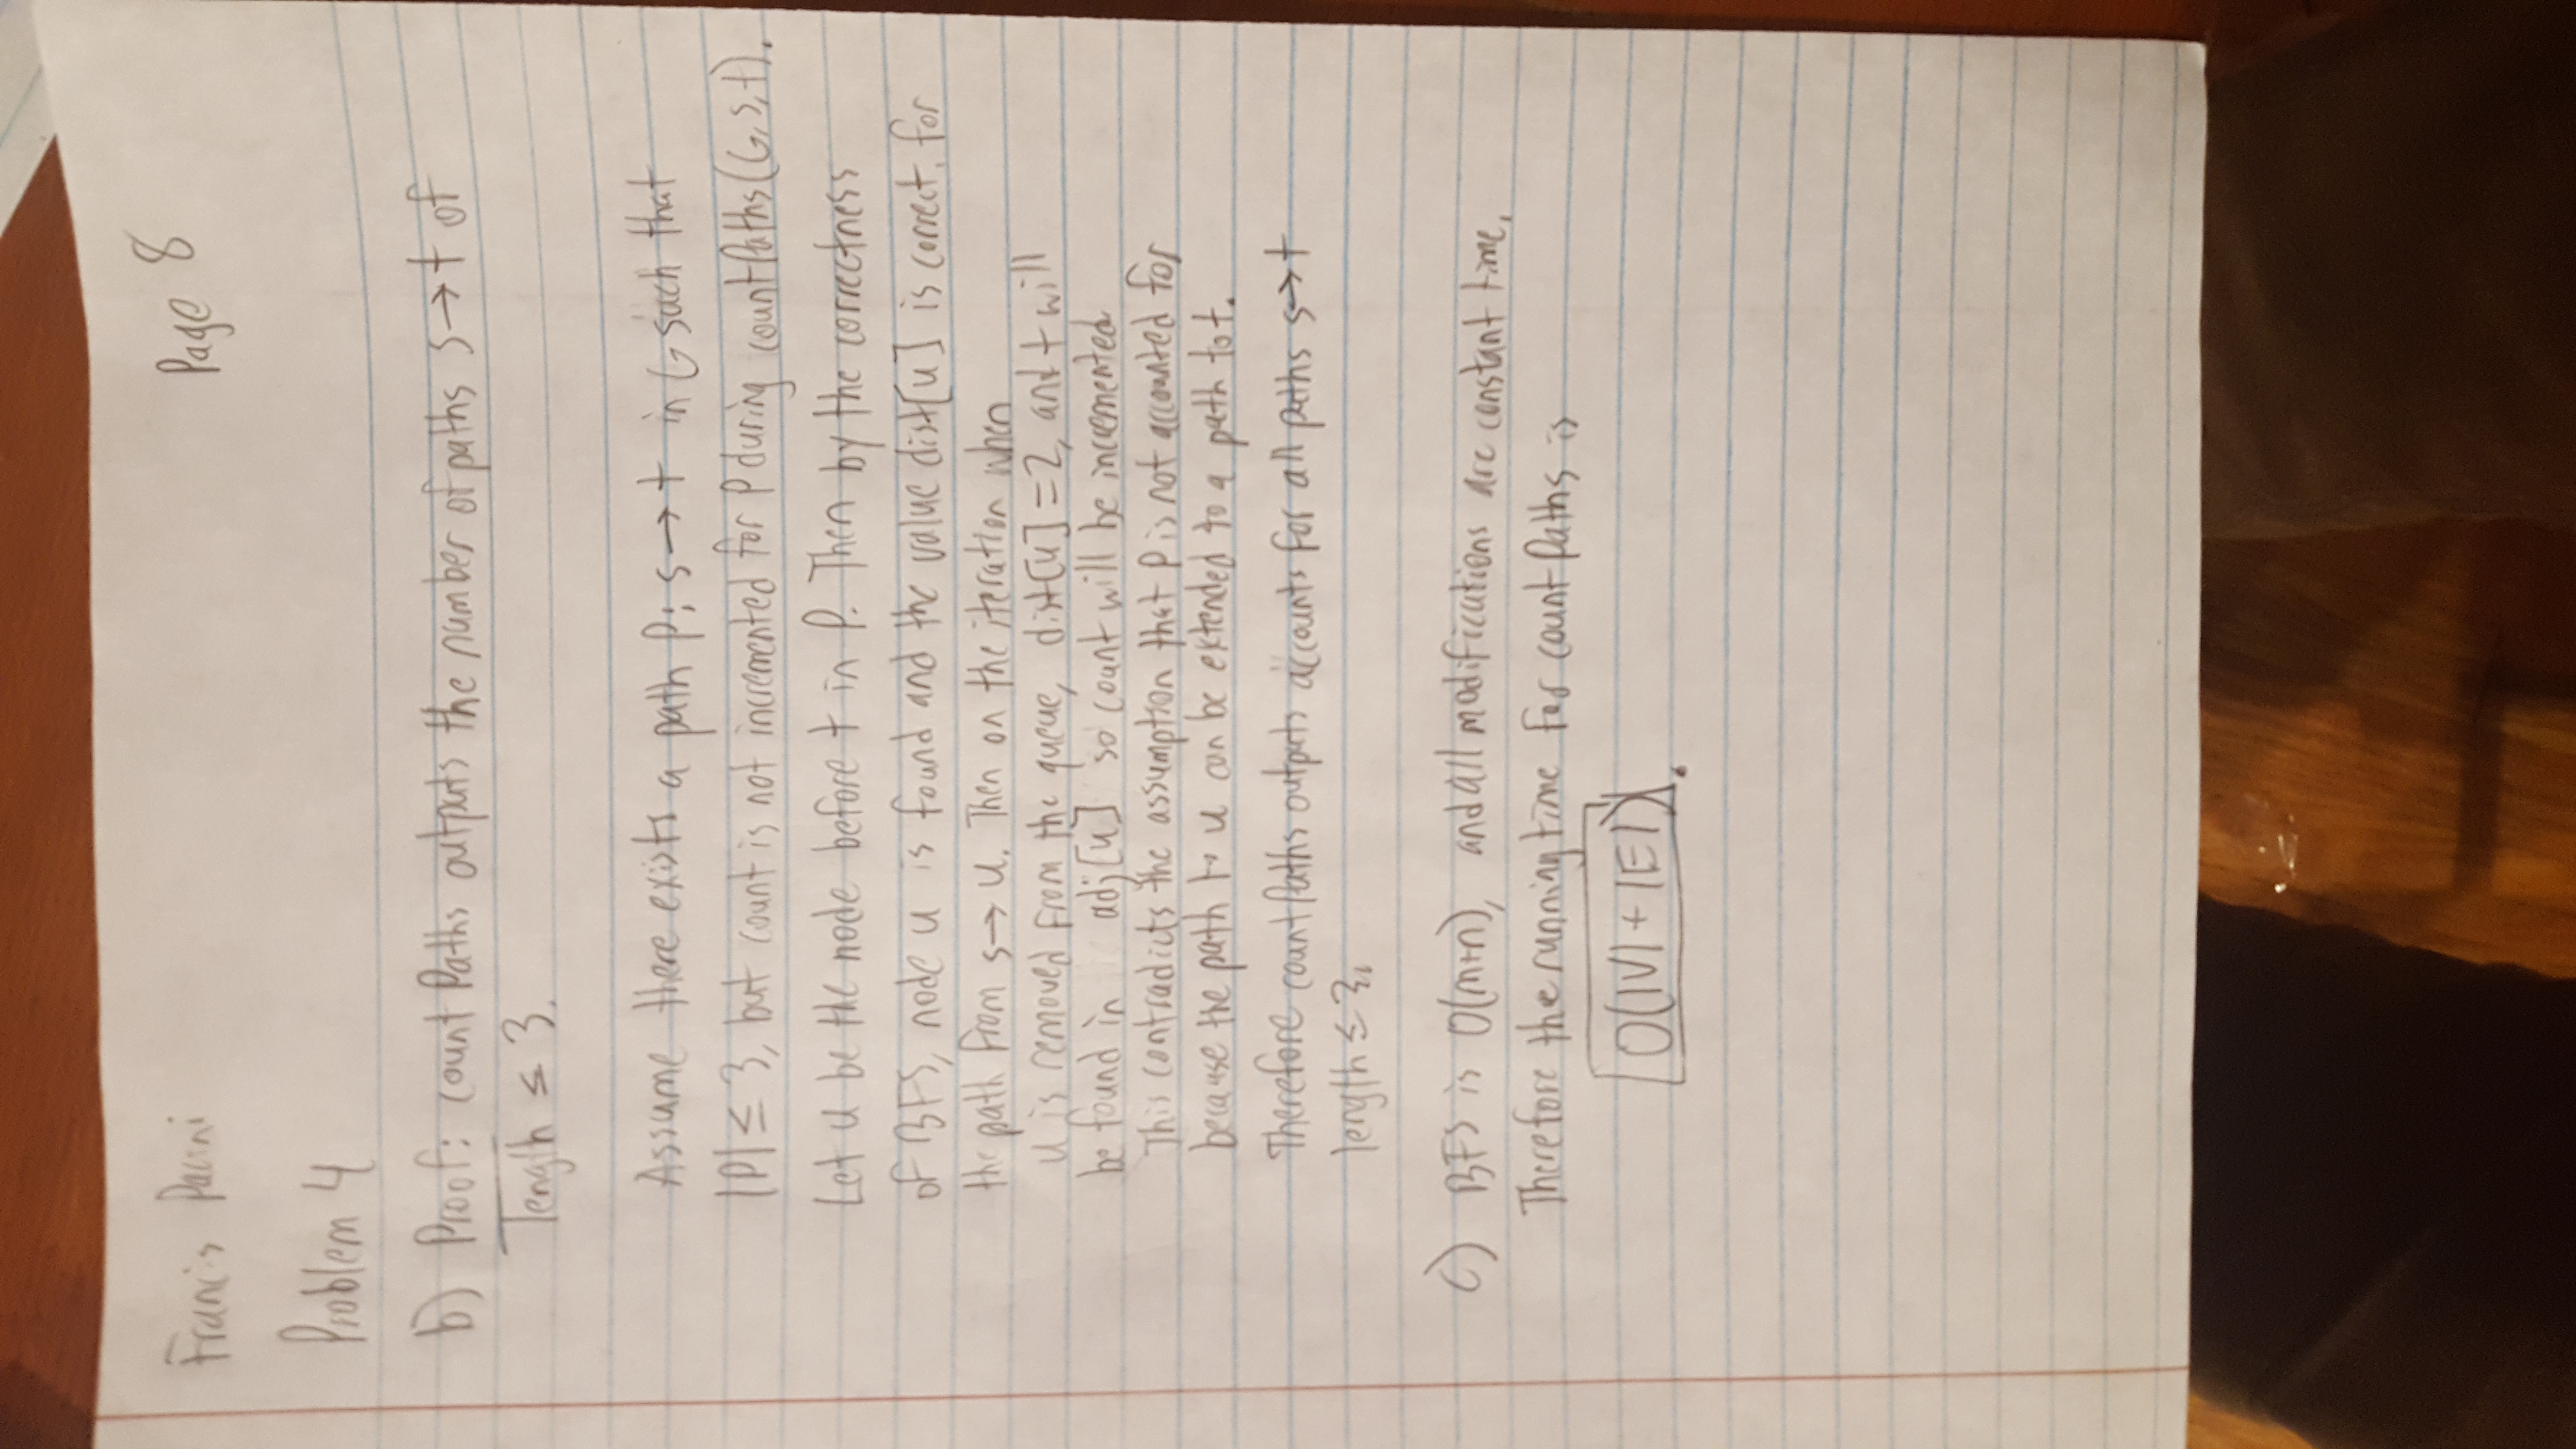 Francis Pacini
Page 8
Problem 4
b) Proof: countPaths outputs the number of paths s→t of
length ≤ 3.
Assume there exists a path P: s→t in G such that
|P| ≤ 3, but count is not incremented for P during countPaths(G,s,t).
Let u be the node before t in P. Then by the correctness
of BFS, node u is found and the value dist[u] is correct. for
the path from s→u. Then on the iteration when
u is removed from the queue, dist[u]=2, and t will
be found in adj[u] so count will be incremented
This contradicts the assumption that P is not accounted for
because the path to u can be extended to a path to t.
Therefore countPaths outputs accounts for all paths s→t
length ≤ 3.
c) BFS is O(m+n), and all modifications are constant time.
Therefore the running time for countPaths is
O(|V| + |E|).